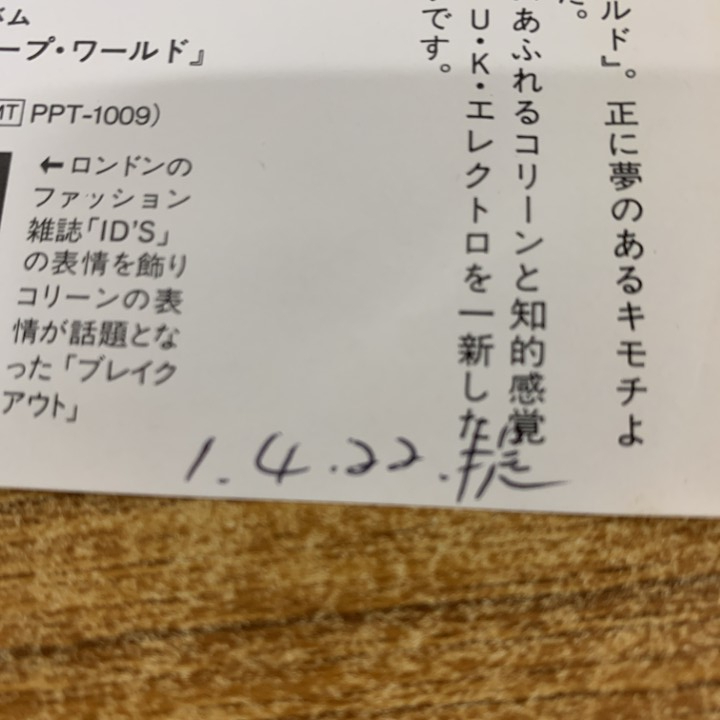 ム
ープ・ワールド』
PPT-1009)
←ロンドンの
ファッション
雑誌「ID'S」
の表情を飾り
コリーンの表
情が話題とな
った「ブレイク
アウト」
ルド』。正に夢のあるキモチよ
た。
あふれるコリーンと知的感覚
U・K・エレクトロを一新した
です。
1.4.22.